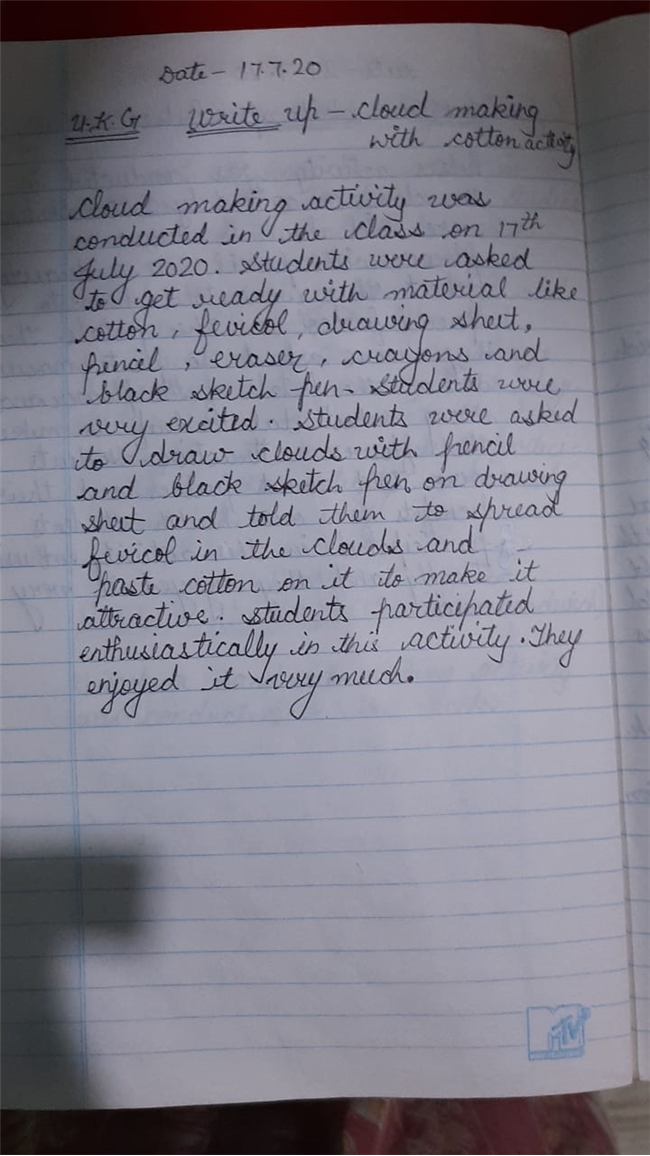 Date - 17.7.20
U.K.G Write up - cloud making
with cotton activity
Cloud making activity was
conducted in the class on 17th
July 2020. Students were asked
to get ready with material like
cotton, fevicol, drawing sheet,
pencil, eraser, crayons and
black sketch pen. Students were
very excited. Students were asked
to draw clouds with pencil
and black sketch pen on drawing
sheet and told them to spread
fevicol in the clouds and
paste cotton on it to make it
attractive. Students participated
enthusiastically in this activity. They
enjoyed it very much.
MTV